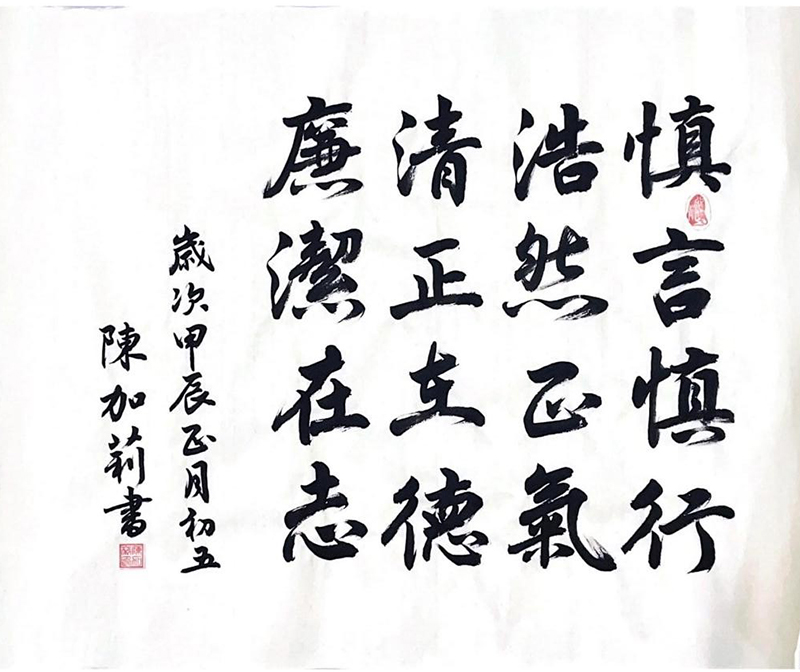 慎言慎行
浩然正氣
清正在德
廉潔在志
歲次甲辰正月初五
陳加莉書